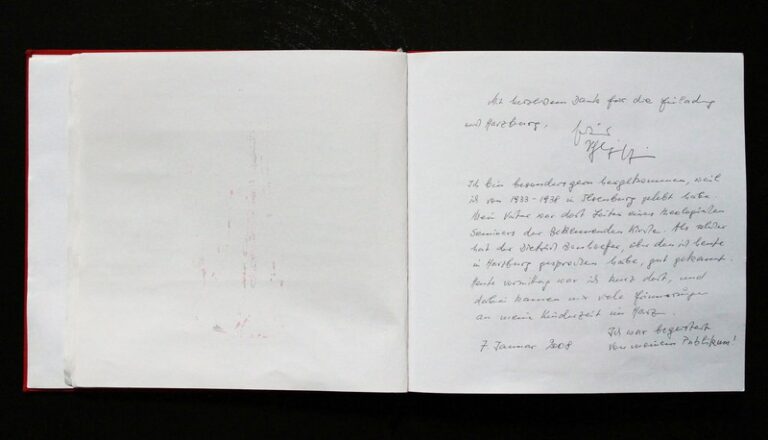 Mit herzlichem Dank für die Einladung
nach Harzburg.
Ich bin besonders gern hergekommen, weil
ich von 1933-1938 in Ilsenburg gelebt habe.
Mein Vater war dort Leiter eines theologischen
Seminars der Bekennenden Kirche. Als solcher
hat der Dietrich Bonhoeffer, über den ich heute
in Harzburg gesprochen habe, gut gekannt.
Heute vormittag war ich kurz dort, und
dabei kamen mir viele Erinnerungen
an meine Kinderzeit im Harz.
7 Januar 2008
Ich war begeistert
von meinem Publikum!